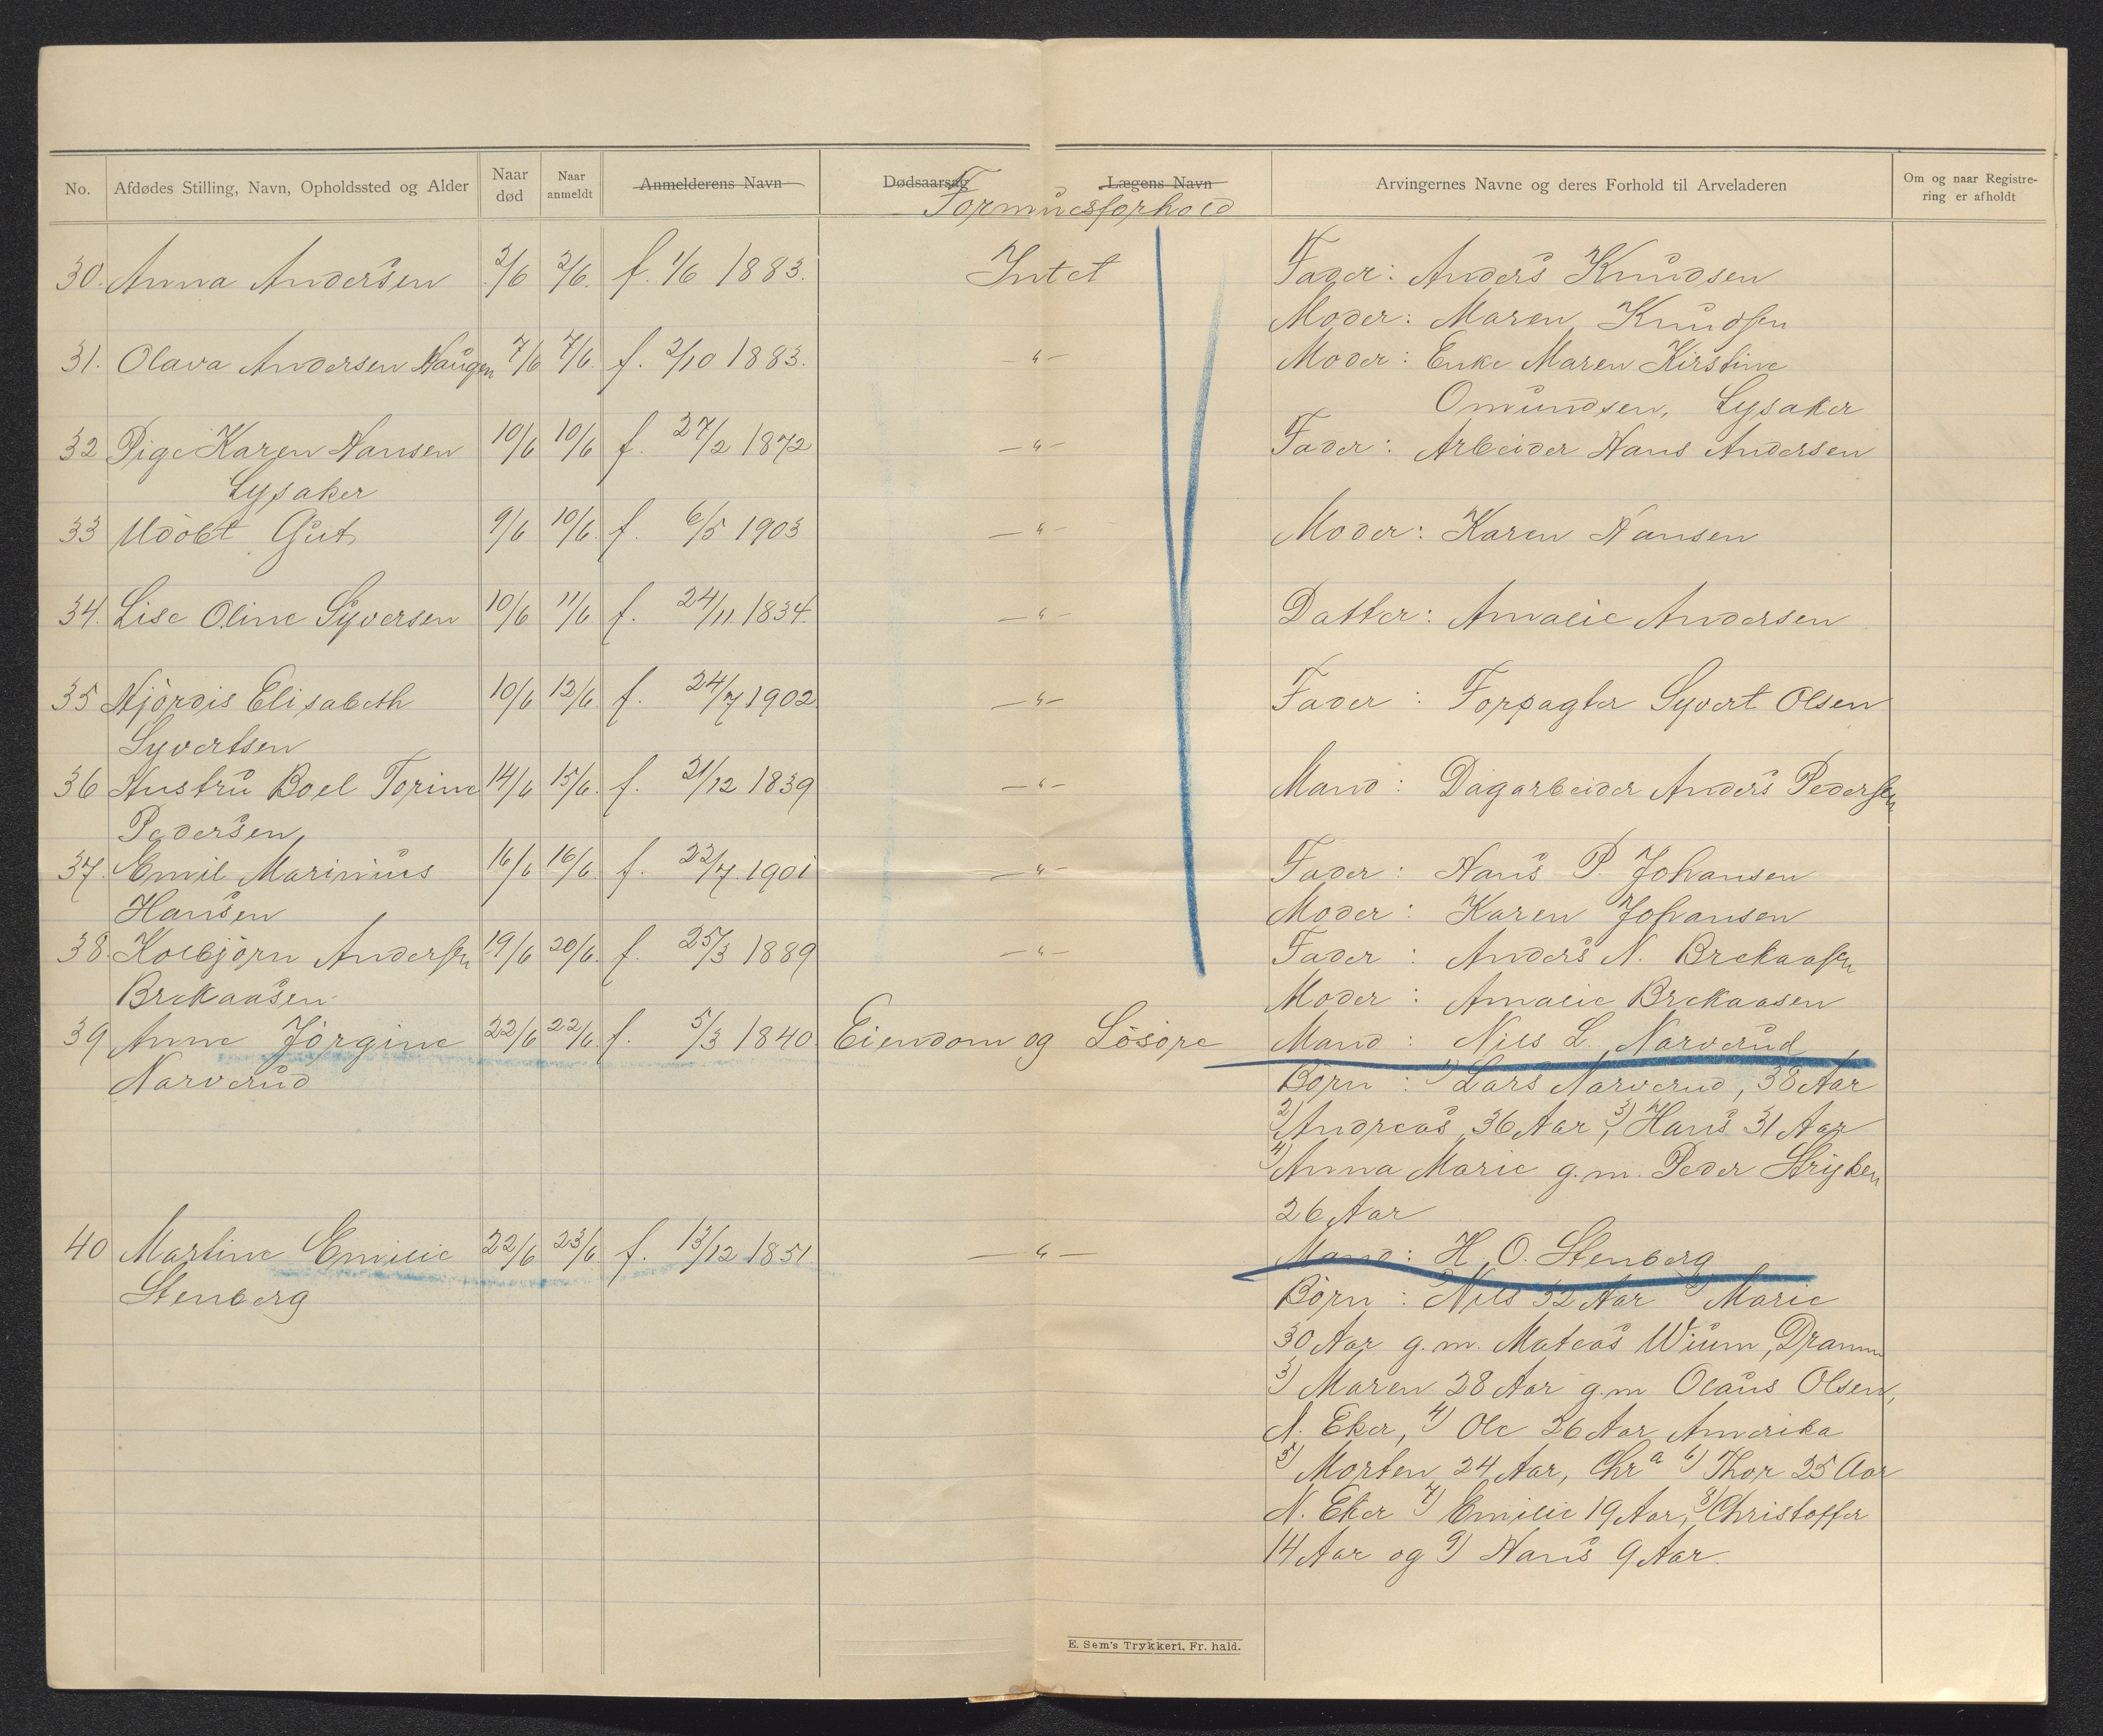 No. Afdødes Stilling, Navn, Opholdssted og Alder Naar død Naar anmeldt Anmelderens Navn Dødsaarsag Lægens Navn Arvingernes Navne og deres Forhold til Arveladeren Om og naar Registrering er afholdt
Formuesforhold
30. Anna Andersen 2/6 2/6. f. 1/6 1883. Intet Fader: Anders Knudsen
Moder: Maren Knudsen
31. Olava Andersen Haugen 7/6 7/6. f. 2/10 1883. —"— Moder: Enke Maren Kirstine
Omundsen, Lysaker
32 Pige Karen Hansen 10/6 10/6 f. 27/2 1872 —"— Fader: Arbeider Hans Andersen
Lysaker
33 Udöbt Gut 9/6 10/6. f. 6/5 1903 —"— Moder: Karen Hansen
34. Lise Oline Syversen 10/6 11/6 f. 24/11 1834. —"— Datter: Amalie Andersen
35 Hjördis Elisabeth 10/6 12/6 f. 24/7 1902 —"— Fader: Forpagter Syvert Olsen
Syvertsen
36 Hustru Boel Torine 14/6 15/6. f. 21/12 1839 —"— Mand: Dagarbeider Anders Pedersen
Pedersen
37. Emil Marinius 16/6 16/6. f. 22/7 1901 —"— Fader: Hans P. Johansen
Hansen Moder: Karen Johansen
38. Kolbjörn Andersen 19/6 20/6. f. 25/3 1889 —"— Fader: Anders N. Brekaasen
Brekaasen Moder: Amalie Brekaasen
39 Anne Jörgine 22/6 22/6. f. 5/3 1840. Eiendom og Lösöre Mand: Nils L. Narverud
Narverud Börn: 1) Lars Narverud, 38 Aar
2) Andreas 36 Aar, 3) Hans 31 Aar
4) Anna Marie g.m. Peder Stryken
26 Aar
40 Martine Emilie 22/6 23/6 f. 13/12 1851 —"— Mand: H. O. Stenberg
Stenberg Börn: 1) Nils 32 Aar 2) Marie
30 Aar g.m. Mateas Wium, Dramm
3) Maren 28 Aar g.m Olaus Olsen,
N. Eker, 4) Ole 26 Aar Amerika
5) Morten 24 Aar, Chra 6) Thor 25 Aar
N. Eker 7) Emilie 19 Aar, 8) Christoffer
14 Aar og 9) Hans 9 Aar.
E. Sem's Trykkeri, Fr. hald.